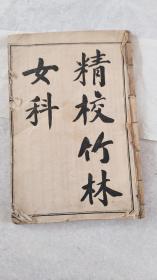 精校竹林
女科